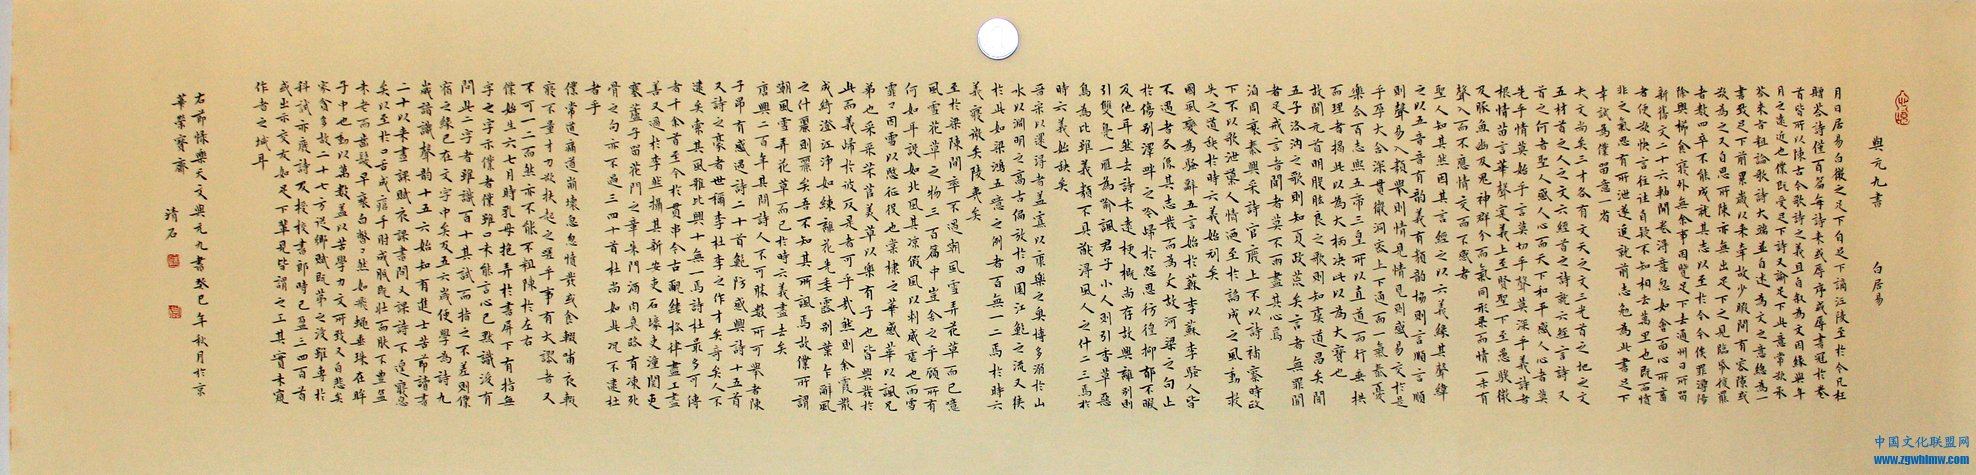 與元九書 白居易
月日居易白微之足下自足下謫江陵至於今凡枉
贈答詩僅百篇每詩來或辱序或辱書冠於卷
首皆所以陳古今歌詩之義且自叙為文因緣與年
月之遠近也僕既受足下詩又諭足下此意常欲承
答來旨粗論歌詩大端並自述為文之意總為一
書致足下前累歲以來牽故少暇間有容隙或
欲為之又自思所陳亦無出足下之見臨紙復罷
者數四卒不能成就其志以至於今今俟罪潯陽
除與櫛食寢外無餘事因覽足下去通州日所留
新舊文二十六軸開卷得意忽如會面心所畜
者便欲快言往往自疑不知相去萬里也既而憤
悱之氣思有所泄遂追就前志勉為此書足下
幸試為僕留意一省
夫文尚矣三才各有文天之文三光首之地之文
五材首之人之文六經首之就六經言詩又
首之何者聖人感人心而天下和平感人心者莫
先乎情莫始乎言莫切乎聲莫深乎義詩者
根情苗言華聲實義上至賢聖下至愚騃微
及豚魚幽及鬼神群分而氣同形異而情一未有
聲入而不應情交而不感者
聖人知其然因其言經之以六義緣其聲緯
之以五音音有韻義有類韻協則言順言順
則聲易入類舉則情見情見則感易交於是
乎孕大含深貫微洞密上下通而一氣泰憂
樂合百志熙五帝三皇所以直道而行垂拱
而理者揭此以為大柄決此以為大寶也
故聞元首明股肱良之歌則知虞道昌矣聞
五子洛汭之歌則知夏政荒矣言者無罪聞
者足戒言者聞者莫不兩盡其心焉
洎周衰秦興采詩官廢上不以詩補察時政
下不以歌泄導人情乃至於諂成之風動救
失之道缺於時六義始刓矣
國風變為騷辭五言始於蘇李蘇李騷人皆
不遇者各係其志發而為文故河梁之句止
於傷別澤畔之吟歸於怨思彷徨抑郁不暇
及他耳然去詩未遠梗概尚存故興離別則
引雙鳧一雁為喻諷君子小人則引香草惡
鳥為比雖義類不具猶得風人之什二三焉於
時六義始缺矣
晉宋以還得者蓋寡以康樂之奧博多溺於山
水以淵明之高古偏放於田園江鮑之流又狹
於此如梁鴻五噫之例者百無一二焉於時六
義寢微矣陵夷矣
至於梁陳間率不過嘲風雪弄花草而已噫
風雪花草之物三百篇中豈舍之乎顧所用
何如耳設如北風其涼假風以刺威虐也雨雪
霏霏因雪以愍征役也棠棣之華感華以諷兄
弟也采采芣苢美草以樂有子也皆興發於
此而義歸於彼反是者可乎哉然則余霞散
成綺澄江淨如練離花先委露別葉乍辭風
之什麗則麗矣吾不知其所諷焉故僕所謂
嘲風雪弄花草而已於時六義盡去矣
唐興二百年其間詩人不可勝數所可舉者陳
子昂有感遇詩二十首鮑防感興詩十五首
又詩之豪者世稱李杜李之作才矣奇矣人不
逮矣索其風雅比興十無一焉杜詩最多可傳
者千余首至於貫串今古覼縷格律盡工盡
善又過於李然撮其新安吏石壕吏潼關吏
塞蘆子留花門之章朱門酒肉臭路有凍死
骨之句亦不過三四十首杜尚如此況不逮杜
者乎
僕常痛詩道崩壞忽忽憤發或食輟哺夜輟
寢不量才力欲扶起之嗟乎事有大謬者又
不可一二而言然亦不能不粗陳於左右
僕始生六七月時乳母抱弄於書屏下有指無
字之字示僕者僕雖口未能言心已默識後有
問此二字者雖百十其試而指之不差則僕
宿習之緣已在文字中矣及五六歲便學為詩九
歲諳識聲韻十五六始知有進士苦節讀書
二十以來晝課賦夜課書間又課詩不遑寢息
矣以至於口舌成瘡手肘成胝既壯而膚革不豐盈
未老而齒髮早衰白瞥瞥然如飛蠅垂珠在眸
子中也動以萬數蓋以苦學力文所致又自悲矣
家貧多故二十七方從鄉賦既第之後雖專於
科試亦不廢詩及授校書郎時已盈三四百首
或出示交友如足下輩見皆謂之工其實未窺
作者之域耳
右節錄樂天文與元九書癸巳年秋月於京
華榮寶齋 清石
中国文化联盟网
www.zgwhlmw.com